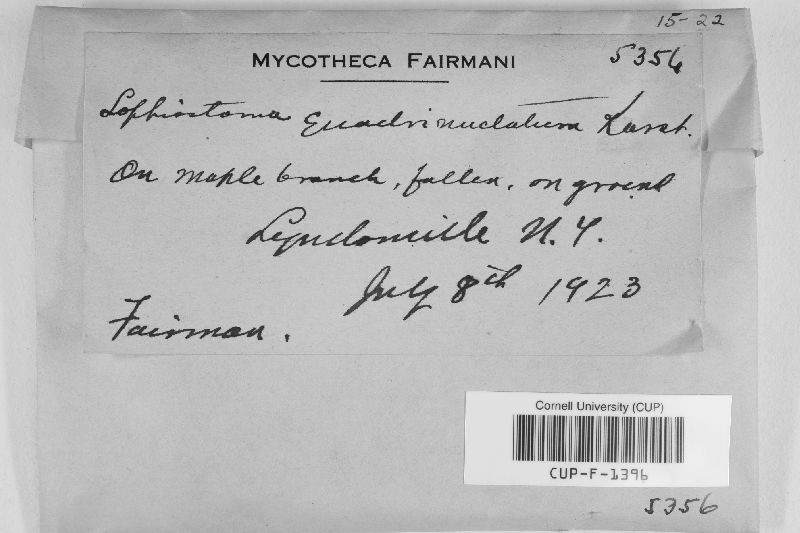 15-22
MYCOTHECA FAIRMANI
5356
Lophiostoma quadrinucleatum Karst.
On maple branch, fallen, on ground
Lyndonville N.Y.
July 8th 1923
Fairman.
Cornell University (CUP)
CUP-F-1396
5356